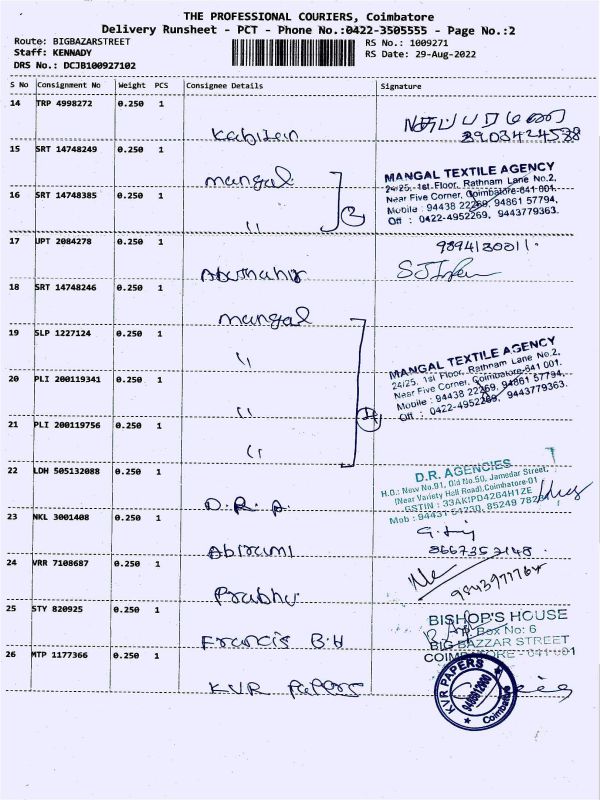 THE PROFESSIONAL COURIERS, Coimbatore
Delivery Runsheet - PCT - Phone No.:0422-3505555 - Page No.:2
Route: BIGBAZARSTREET
RS No.: 1009271
Staff: KENNADY
RS Date: 29-Aug-2022
DRS No.: DCJB100927102
S No Consignment No Weight PCS Consignee Details Signature
14 TRP 4998272 0.250 1
15 SRT 14748249 0.250 1
mangal
MANGAL TEXTILE AGENCY
24/25, 1st Floor, Rathnam Lane No.2,
Near Five Corner, Coimbatore-641 001.
Mobile : 94438 22269, 94861 57794,
Off : 0422-4952269, 9443779363.
16 SRT 14748385 0.250 1
"
2
17 UPT 2084278 0.250 1
18 SRT 14748246 0.250 1
mangal
19 SLP 1227124 0.250 1
"
MANGAL TEXTILE AGENCY
24/25, 1st Floor, Rathnam Lane No.2,
Near Five Corner, Coimbatore-641 001.
Mobile : 94438 22269, 94861 57794,
Off : 0422-4952269, 9443779363.
20 PLI 200119341 0.250 1
"
21 PLI 200119756 0.250 1
"
22 LDH 505132088 0.250 1
D.R.A.
D.R. AGENCIES
H.O.: New No.91, Old No.50, Jamedar Street,
(Near Variety Hall Road), Coimbatore-01
GSTIN : 33AKIPD4264H1ZE
23 NKL 3001408 0.250 1
Abirami
24 VRR 7108687 0.250 1
Prabhu
25 STY 820925 0.250 1
Francis B.H
BISHOP'S HOUSE
P. Box No: 6
BIG BAZZAR STREET
26 MTP 1177366 0.250 1
KVR Papers
KVR PAPERS
Coimbatore